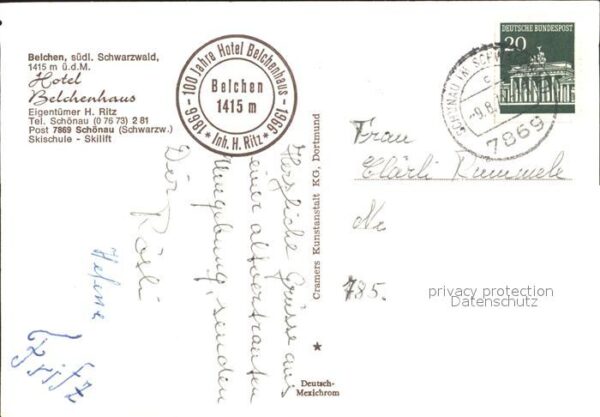 Belchen, südl. Schwarzwald,
1415 m ü.d.M.
Hotel
Belchenhaus
Eigentümer H. Ritz
Tel. Schönau (0 76 73) 2 81
Post 7869 Schönau (Schwarzw.)
Skischule - Skilift
100 Jahre Hotel Belchenhaus
1866 * Inh. H. Ritz * 1966
Belchen
1415 m
Herzliche Grüsse aus
einer altvertrauten
Umgebung, senden
Dir
Rösli
Helene
Fritz
Cramers Kunstanstalt KG, Dortmund
Deutsch-
Mexichrom
DEUTSCHE BUNDESPOST
20
SCHÖNAU IM SCHW
-9.8.
7869
Frau
Clärli Rummele
785.
privacy protection
Datenschutz